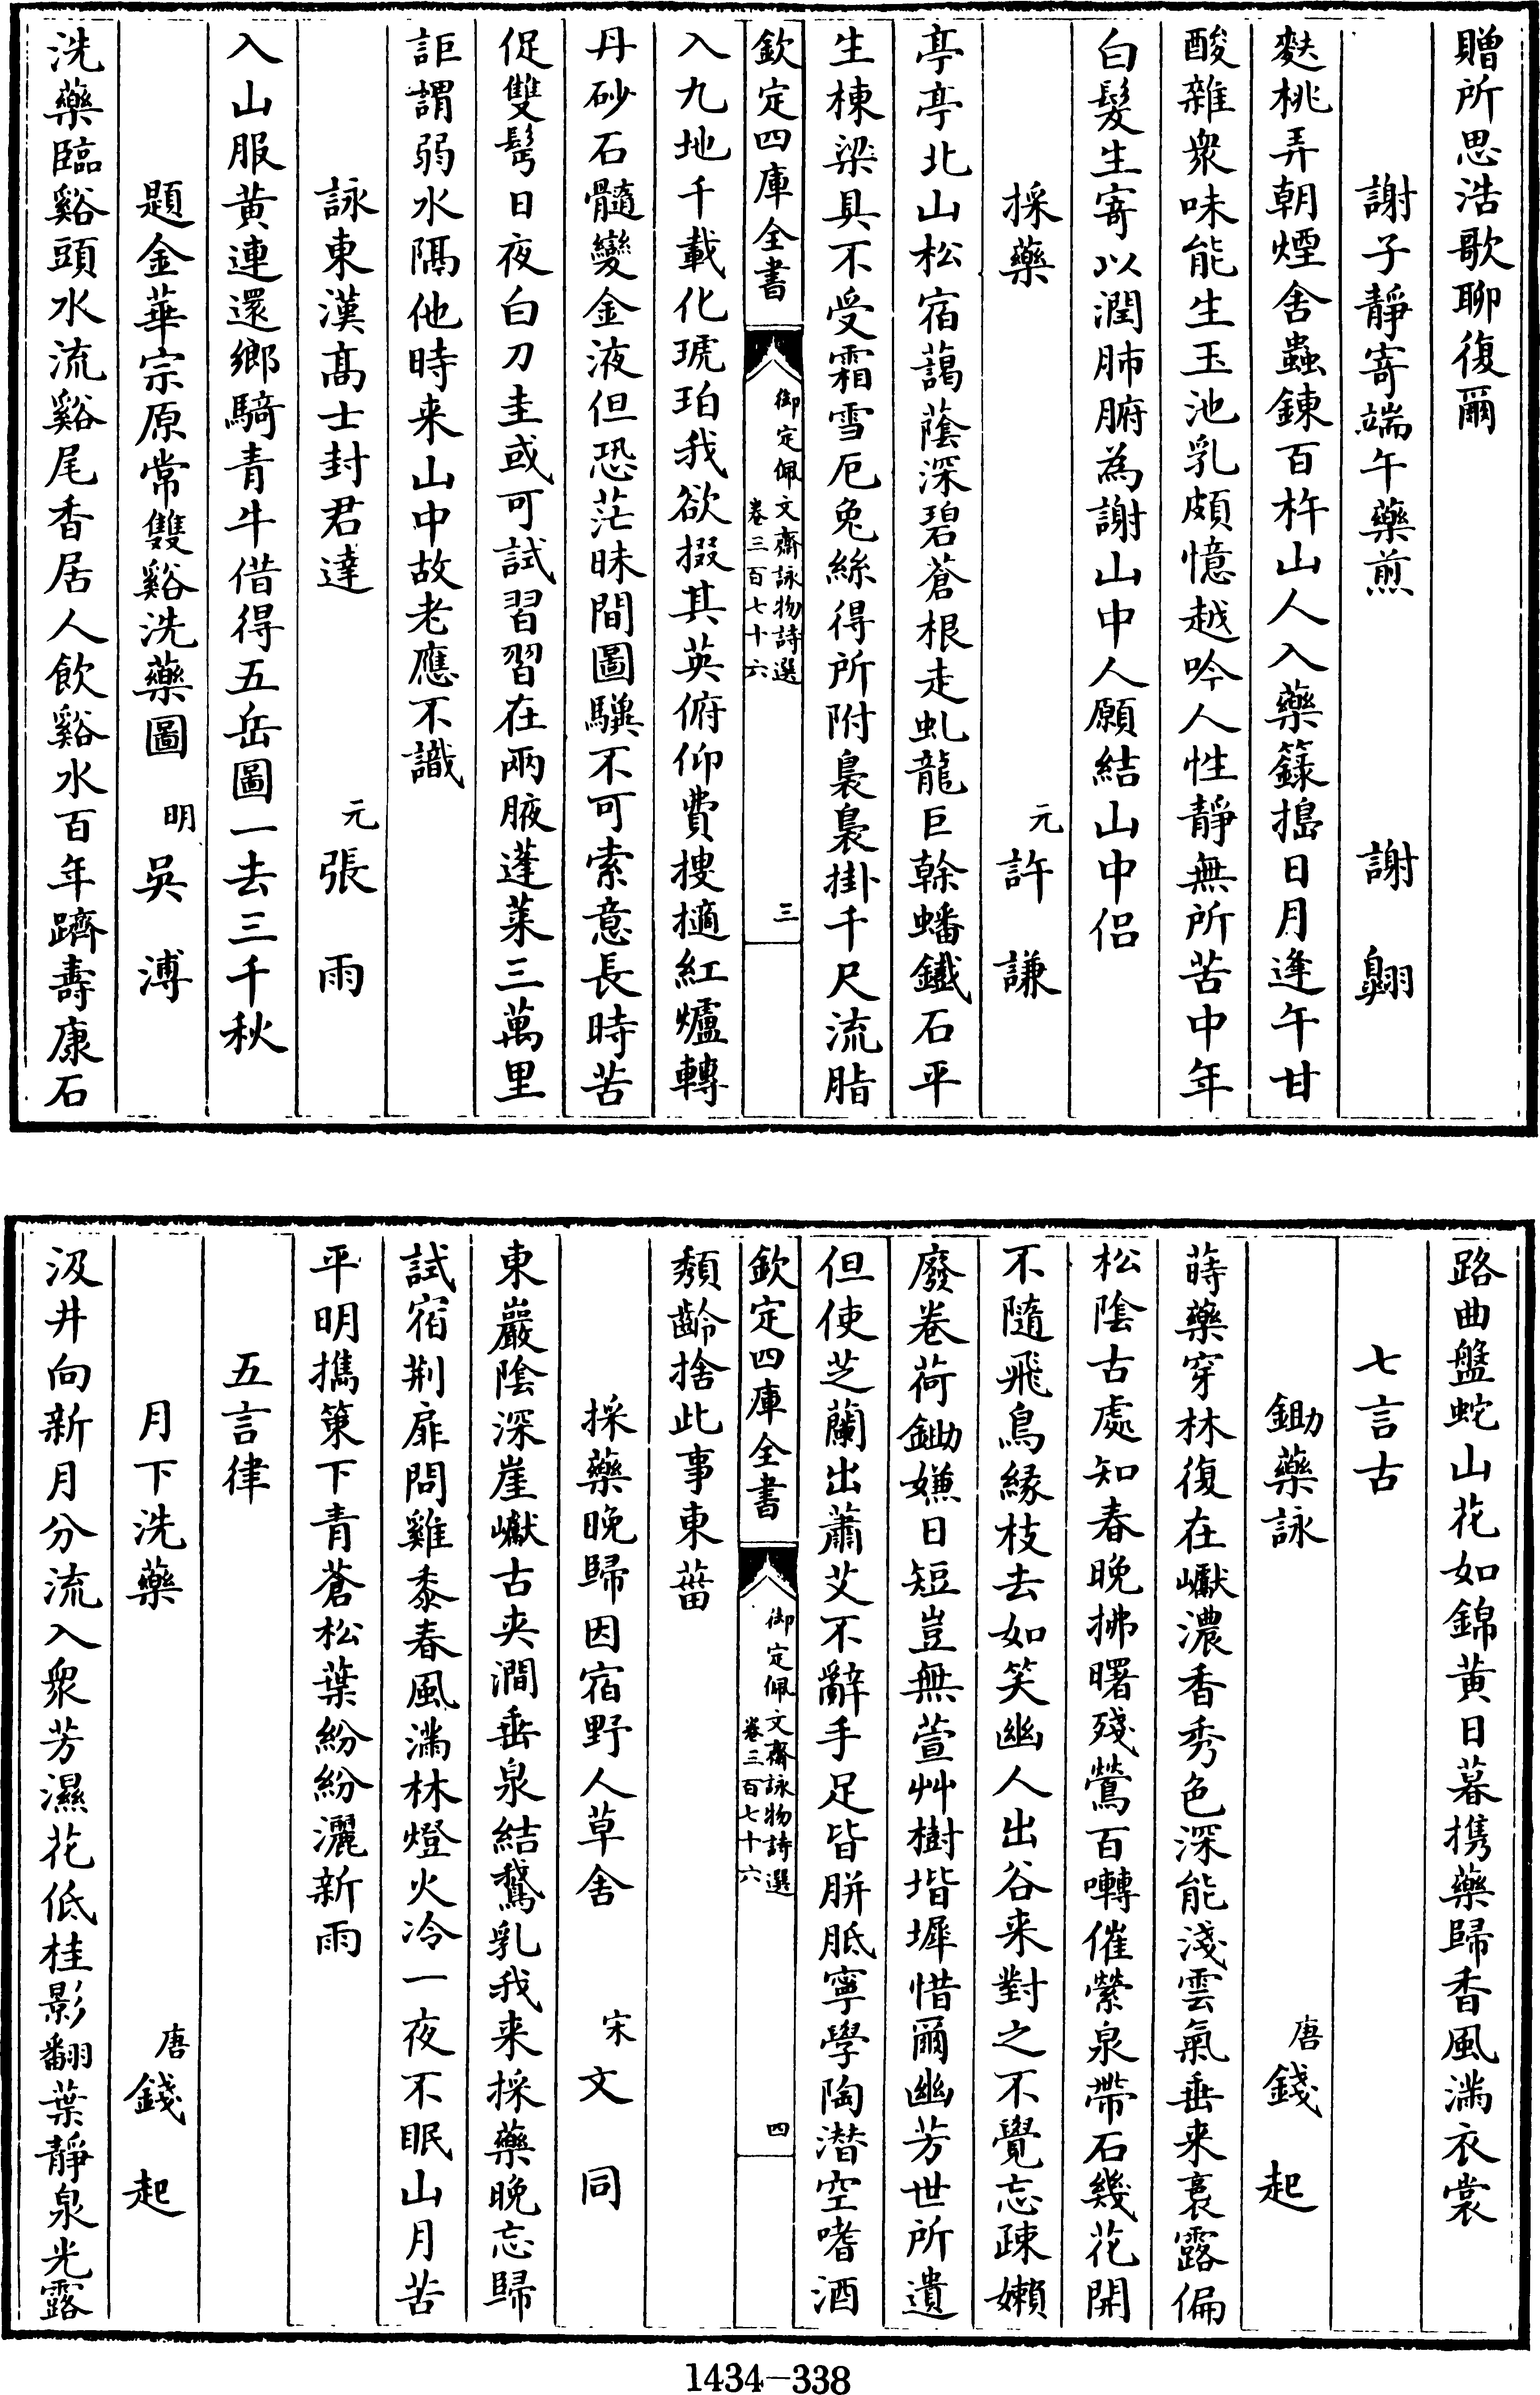 贈所思浩歌聊復爾
謝子靜寄端午藥煎　謝　翺
麩桃弄朝煙舍蟲鍊百杵山人入藥籙搗日月逢午甘
酸雜衆味能生玉池乳頗憶越吟人性靜無所苦中年
白髮生寄以潤肺腑為謝山中人願結山中侣
採藥　元許　謙
亭亭北山松宿藹蔭深碧蒼根走虬龍巨榦蟠鐵石平
生棟梁具不受霜雪厄兔絲得所附裊裊掛千尺流脂
欽定四庫全書　御定佩文齋詠物詩選　卷三百七十六　三
入九地千載化琥珀我欲掇其英俯仰費搜擿紅爐轉
丹砂石髓變金液但恐茫昧間圖驥不可索意長時苦
促雙鬢日夜白刀圭或可試習習在兩腋蓬萊三萬里
詎謂弱水隔他時来山中故老應不識
詠東漢髙士封君達　元張　雨
入山服黄連還鄉騎青牛借得五岳圖一去三千秋
題金華宗原常雙谿洗藥圖　明吳　溥
洗藥臨谿頭水流谿尾香居人飲谿水百年躋壽康石
路曲盤蛇山花如錦黄日暮携藥歸香風滿衣裳
七言古
鋤藥詠　唐錢　起
蒔藥穿林復在巘濃香秀色深能淺雲氣垂来裛露偏
松陰古處知春晚拂曙殘鶯百囀催縈泉帶石幾花開
不隨飛鳥緣枝去如笑幽人出谷来對之不覺忘疎嬾
廢卷荷鋤嫌日短豈無萱艸樹堦墀惜爾幽芳世所遺
但使芝蘭出蕭艾不辭手足皆胼胝寧學陶潛空嗜酒
欽定四庫全書　御定佩文齋詠物詩選　卷三百七十六　四
頽齡捨此事東菑
採藥晚歸因宿野人草舍　宋文　同
東巖陰深崖巘古夾澗垂泉結鵞乳我来採藥晚忘歸
試宿荆扉問雞黍春風滿林燈火冷一夜不眠山月苦
平明攜篥下青蒼松葉紛紛灑新雨
五言律
月下洗藥　唐錢　起
汲井向新月分流入衆芳濕花低桂影翻葉靜泉光露
1434—338